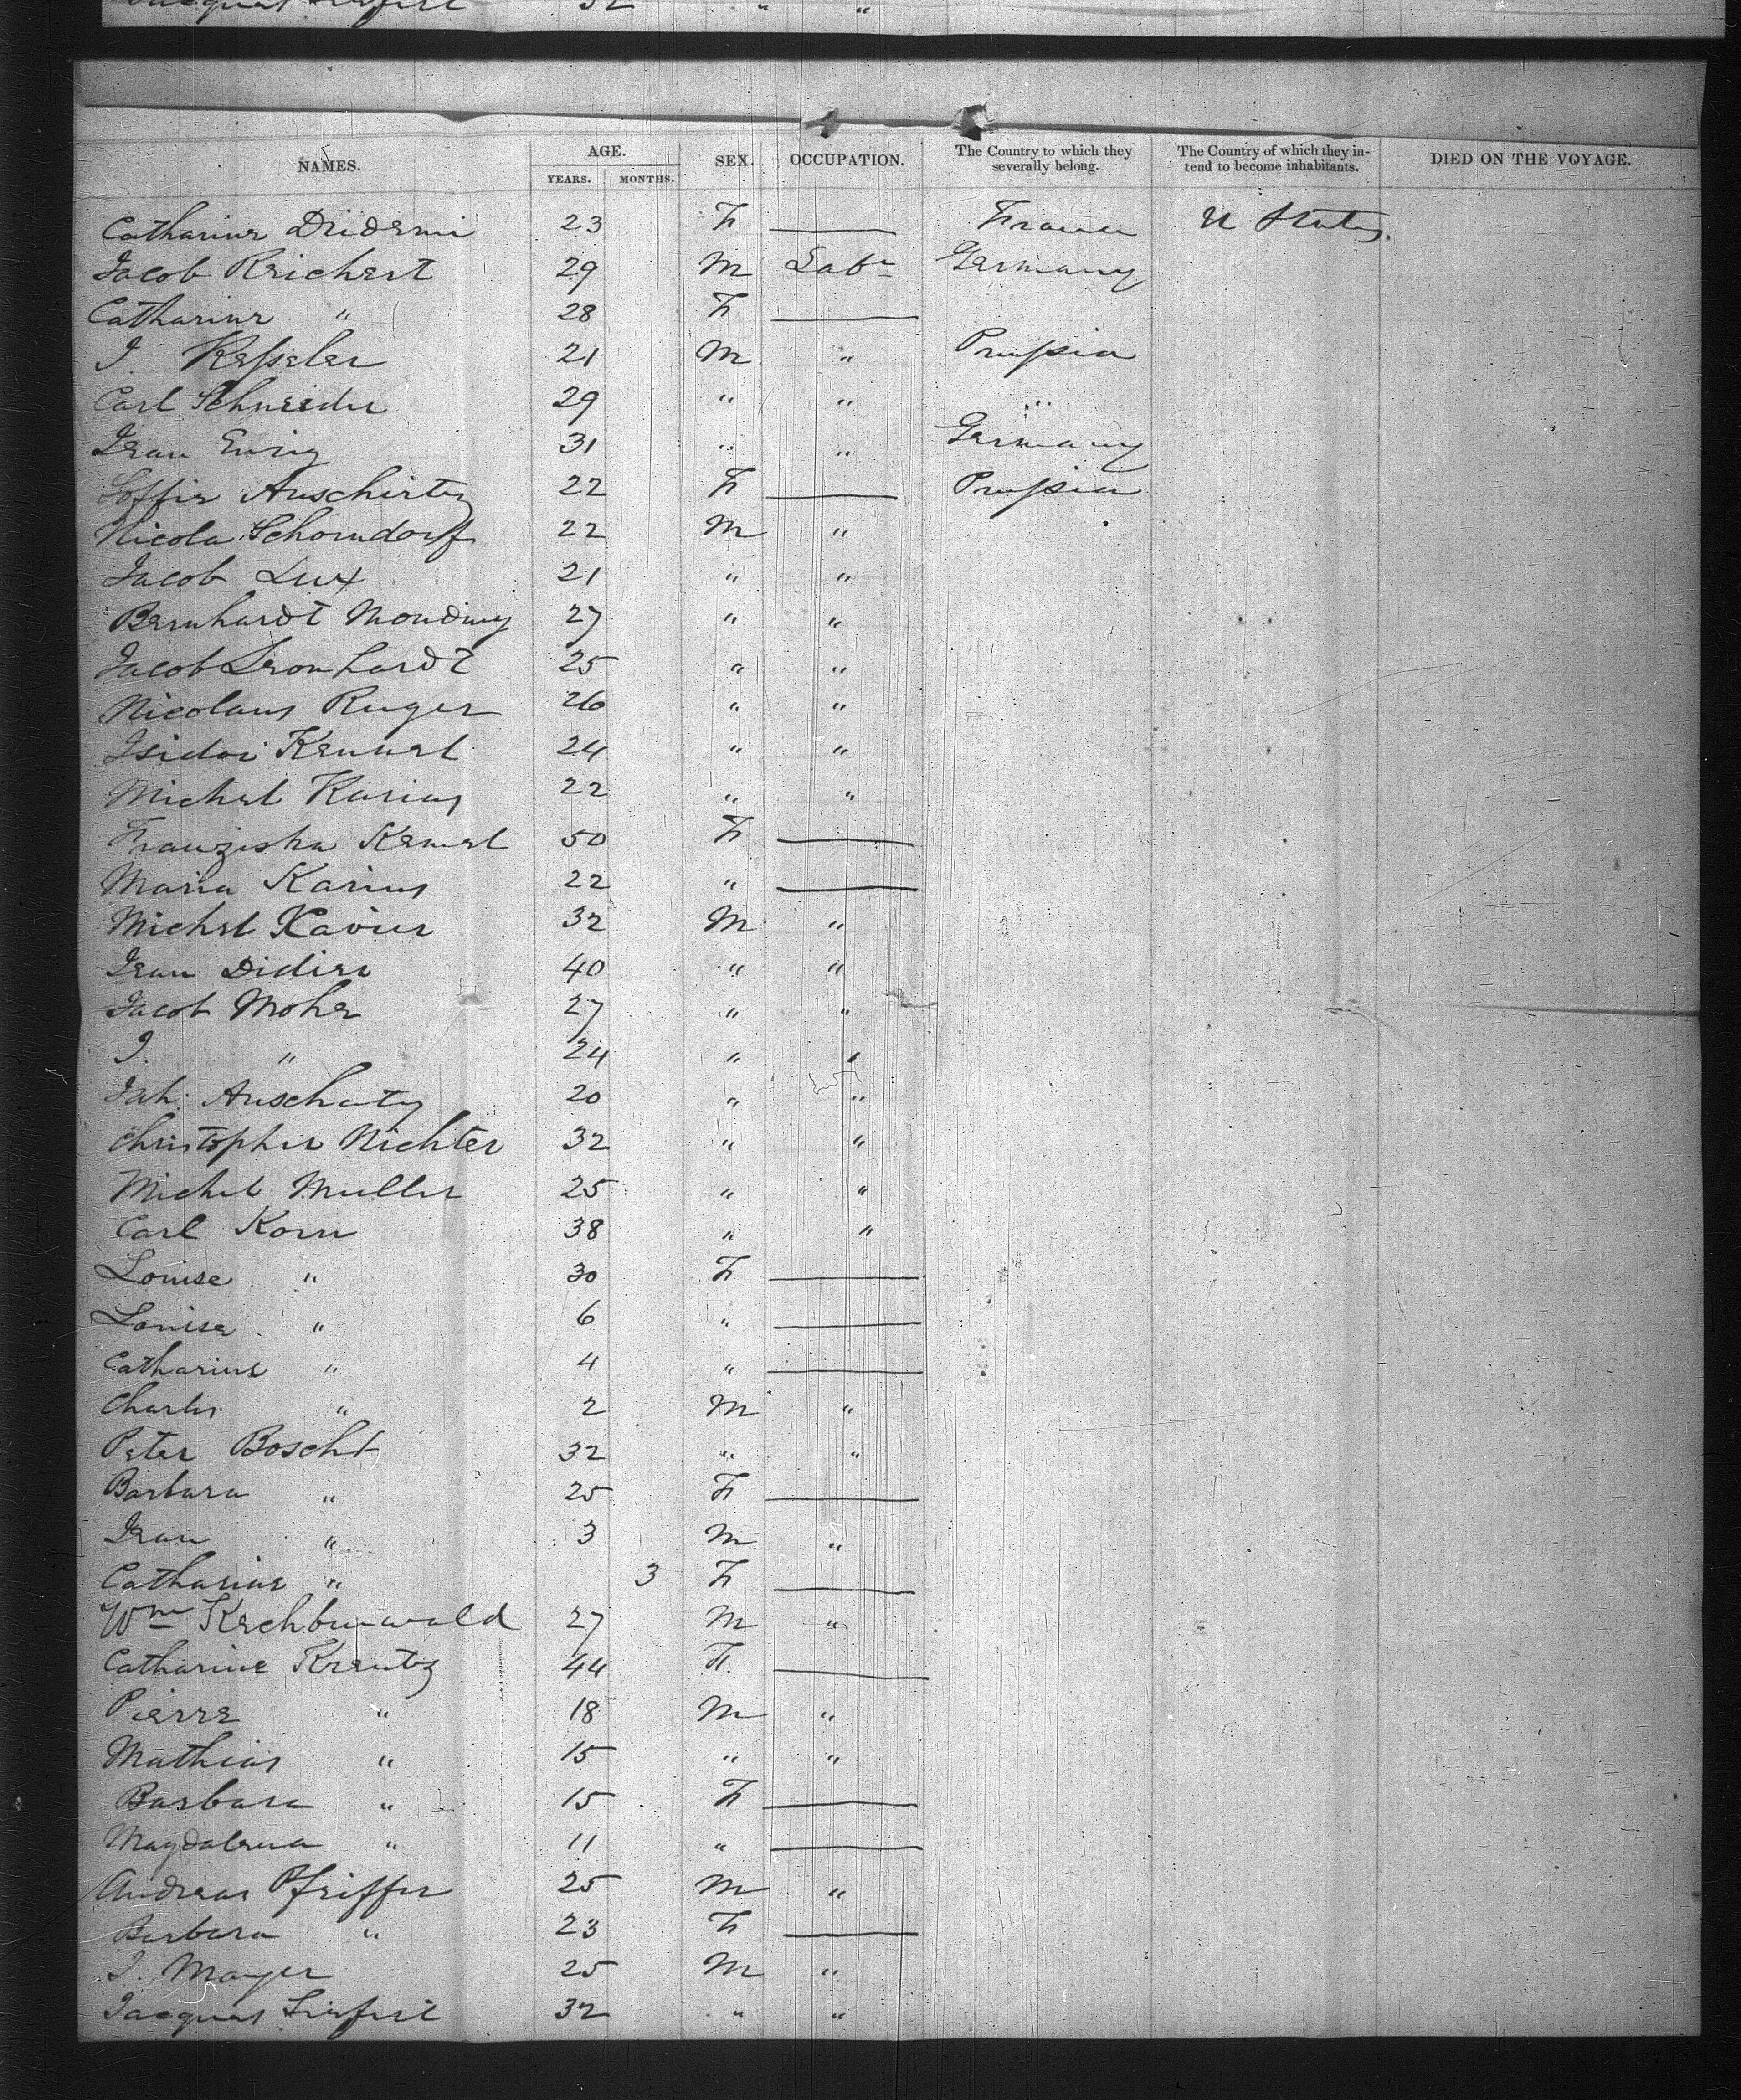 NAMES. AGE. YEARS. MONTHS. SEX. OCCUPATION. The Country to which they severally belong. The Country of which they intend to become inhabitants. DIED ON THE VOYAGE.
Catharine 23 F — France U States
Jacob Reichert 29 M Labr Germany
Catharine " 28 F —
J. Kessler 21 M " Prussia
Carl Schneider 29 " " "
Jean Ewig 31 " " Germany
Soffie 22 F — Prussia
Nicola Schorndorf 22 M "
Jacob Lux 21 " "
Bernhardt 27 " "
Jacob Leonhardt 25 " "
Nicolaus Ruger 26 " "
Isidor Kennel 24 " "
Michel Karius 22 " "
Franziska Kemel 50 F —
Maria Karius 22 " —
Michel Xavier 32 M "
Jean Didier 40 " "
Jacob Mohr 27 " "
J. " 24 " "
Joh. Auschatz 20 " "
Christopher Richter 32 " "
Michel Muller 25 " "
Carl Korn 38 " "
Louise " 30 F —
Louise " 6 " —
Catharine " 4 " —
Charles " 2 M "
Peter Boscht 32 " "
Barbara " 25 F —
Jean " 3 M "
Catharine " 3 F —
Wm 27 M "
Catharine Kreutz 44 F —
Pierre " 18 M "
Mathias " 15 " "
Barbara " 15 F —
Magdalena " 11 " —
Andreas Pfeiffer 25 M "
Barbara " 23 F —
J. Mayer 25 M "
Jacques 32 " "